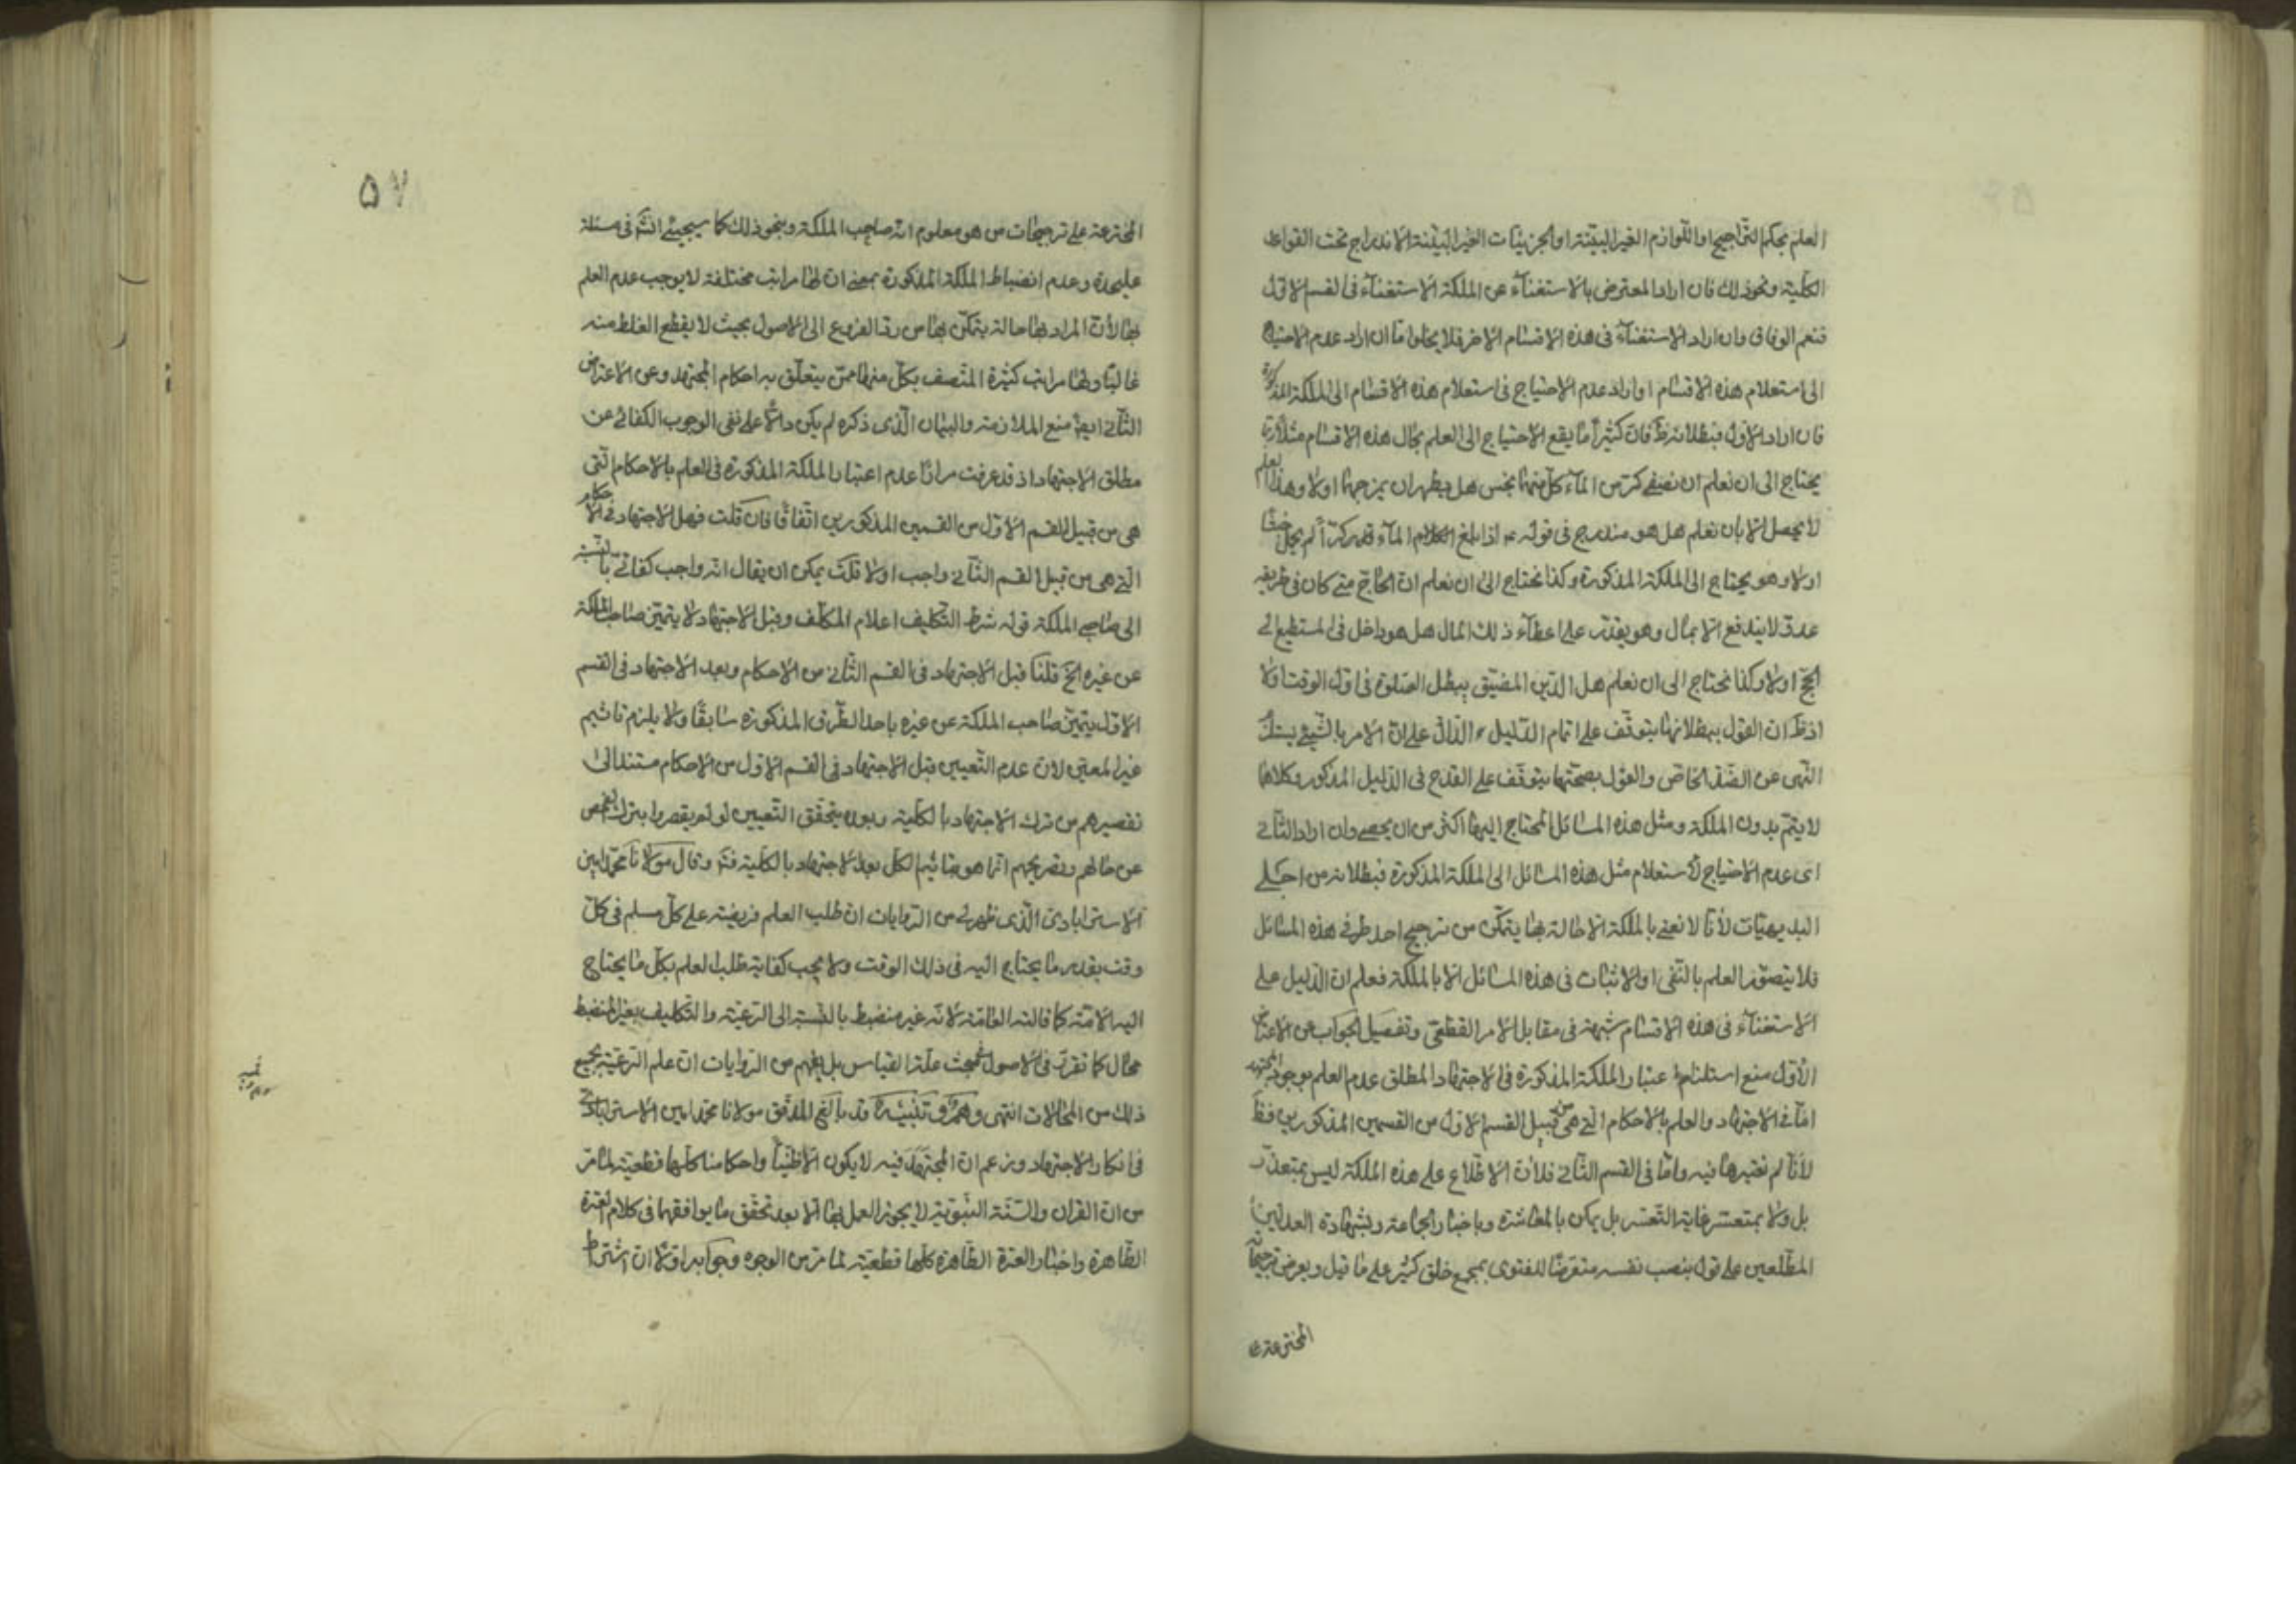 العلم بحكم التراجيح او اللوازم الغير البيّنة او الجزئيات الغير البيّنة الاندراج تحت القواعد
الكلية ونحو ذلك فان اراد المعترض بالاستغناء عن الملكة الاستغناء في القسم الاول
فنعم الوفاق وان اراد الاستغناء في هذه الاقسام الاخر فلا يخلوا اما ان اراد عدم الاحتياج
الى استعلام هذه الاقسام او اراد عدم الاحتياج في استعلام هذه الاقسام الى الملكة المذكورة
فان اراد الاول فبطلانه ظ فان كثيرا ما يقع الاحتياج الى العلم بحال هذه الاقسام مثلا
يحتاج الى ان نعلم ان نصفي كر من الماء كل منهما نجس هل يطهران بمزجهما اولا وهذا
لا يحصل الا بان نعلم هل هو مندرج في قوله ع اذا بلغ الماء قدر كر لم يحمل خبثا
اولا وهو يحتاج الى الملكة المذكورة وكذا نحتاج الى ان نعلم ان الحاج متى كان في طريقه
عدو لا يندفع الا بمال وهو يقدر على اعطاء ذلك المال هل هو داخل في المستطيع الى
الحج اولا وكذا نحتاج الى ان نعلم هل الدين المضيق يبطل الصلوة في اول الوقت اولا
اذ ظ ان القول ببطلانها يتوقف على اتمام الدليل الدال على ان الامر بالشيء يستلزم
النهي عن الضد الخاص والقول بصحتها يتوقف على القدح في الدليل المذكور وكلاهما
لا يتم بدون الملكة ومثل هذه المسائل المحتاج اليها اكثر من ان يحصى وان اراد الثاني
اى عدم الاحتياج لاستعلام مثل هذه المسائل الى الملكة المذكورة فبطلانه من اجلى
البديهيات لأنا لا نعني بالملكة الا حالة بها يتمكن من ترجيح احد طرفي هذه المسائل
فلا يتصور العلم بالنفى او الاثبات في هذه المسائل الا بالملكة فعلم ان الدليل على
الاستغناء في هذه الاقسام شبهة في مقابل الامر القطعي وتفصيل الجواب عن الاعتراض
الأول منع استلزام اعتبار الملكة المذكورة في الاجتهاد المطلق عدم العلم بوجود المجتهد
اما في الاجتهاد والعلم بالاحكام التي هي من قبيل القسم الاول من القسمين المذكورين فظ
لأنا لم نعتبرها فيه واما في القسم الثاني فلان الاطلاع على هذه الملكة ليس بمتعذر
بل ولا بمتعسر غاية التعسر بل يمكن بالمعاشرة وباخبار الجماعة وبشهادة العدلين
المطلعين على قول بنصب نفسه متعرضا للفتوى بمجمع خلق كثير على ما قيل وبعرض ترجيحاته
المخترعة على
٥٧
المخترعة على ترجيحات من هو معلوم انه صاحب الملكة وبنحو ذلك كما سيجيئ انشاء في مسئلة
عليحدة وعدم انضباط الملكة المذكورة بمعنى ان لها مراتب مختلفة لا يوجب عدم العلم
بها لأن المراد بها حالة يتمكن بها من رد الفروع الى الاصول بحيث لا يقطع الغلط منه
غالبا ولها مراتب كثيرة المتصف بكل منها ممن يتعلق به احكام المجتهد وعن الاعتراض
الثاني ايضا منع الملازمة والبيان الذى ذكره لم يكن دالا على نفى الوجوب الكفائى عن
مطلق الاجتهاد اذ قد عرفت مرارا عدم اعتبار الملكة المذكورة في العلم بالاحكام التى
هى من قبيل القسم الاول من القسمين المذكورين اتفاقا فان قلت فهل الاجتهاد في الاحكام
التي هي من قبيل القسم الثاني واجب اولا قلت يمكن ان يقال انه واجب كفائى بالنسبة
الى صاحبي الملكة قوله شرط التكليف اعلام المكلف وقبل الاجتهاد لا يتميز صاحب الملكة
عن غيره الخ قلنا قبل الاجتهاد في القسم الثاني من الاحكام وبعد الاجتهاد في القسم
الاول يتميز صاحب الملكة عن غيره باحد الطرق المذكورة سابقا ولا يلزم تاثيم
غير المعين لان عدم التعيين قبل الاجتهاد في القسم الاول من الاحكام مستند الى
تقصيرهم من ترك الاجتهاد بالكلية وبدونه يتحقق التعيين لو لم يقصروا بترك الفحص
عن حالهم وتصريحهم انما هو بتاثيم الكل بعد الاجتهاد بالكلية فتم وقال مولانا محمد امين
الاسترابادى الذى ظهر لى من الروايات ان طلب العلم فريضة على كل مسلم في كل
وقت بقدر ما يحتاج اليه في ذلك الوقت ولا يجب كفاية طلب العلم بكل ما يحتاج
اليه الامة كما قالته العامة لانه غير منضبط بالنسبة الى الرعية والتكليف بغير المنضبط
محال كما تقرر في الاصول في مبحث علة القياس بل يفهم من الروايات ان علم الرعية بجميع
ذلك من المحالات انتهى وهم وتنبيه قد بالغ المدقق مولانا محمد امين الاسترابادى
في انكار الاجتهاد وزعم ان المجتهد فيه لا يكون الا ظنيا واحكامنا كلها قطعية لما مر
من ان القران والسنة النبوية لا يجوز العمل بها الا بعد تحقق ما يوافقهما في كلام العترة
الطاهرة واخبار العترة الطاهرة كلها قطعية لما مر من الوجوه وجوابه اولا ان اشتراط